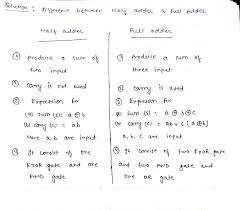 Solution : Difference between Half adder & Full Adder
Half adder
① Produce a sum of
two input
② Carry is not used
③ Expression for
(a) Sum (s) = a ⊕ b
(b) carry (c) = ab
Here a, b are input
④ It consist of one
ExOR gate and one
AND gate
Full adder
① Produce a sum of
three input
② Carry is used
③ Expression for
(a) Sum (s) = a ⊕ b ⊕ c
(b) Carry (c) = ab + c (a ⊕ b)
a, b, c are input
④ It consist of two ExOR gate
and two AND gate and
one OR gate